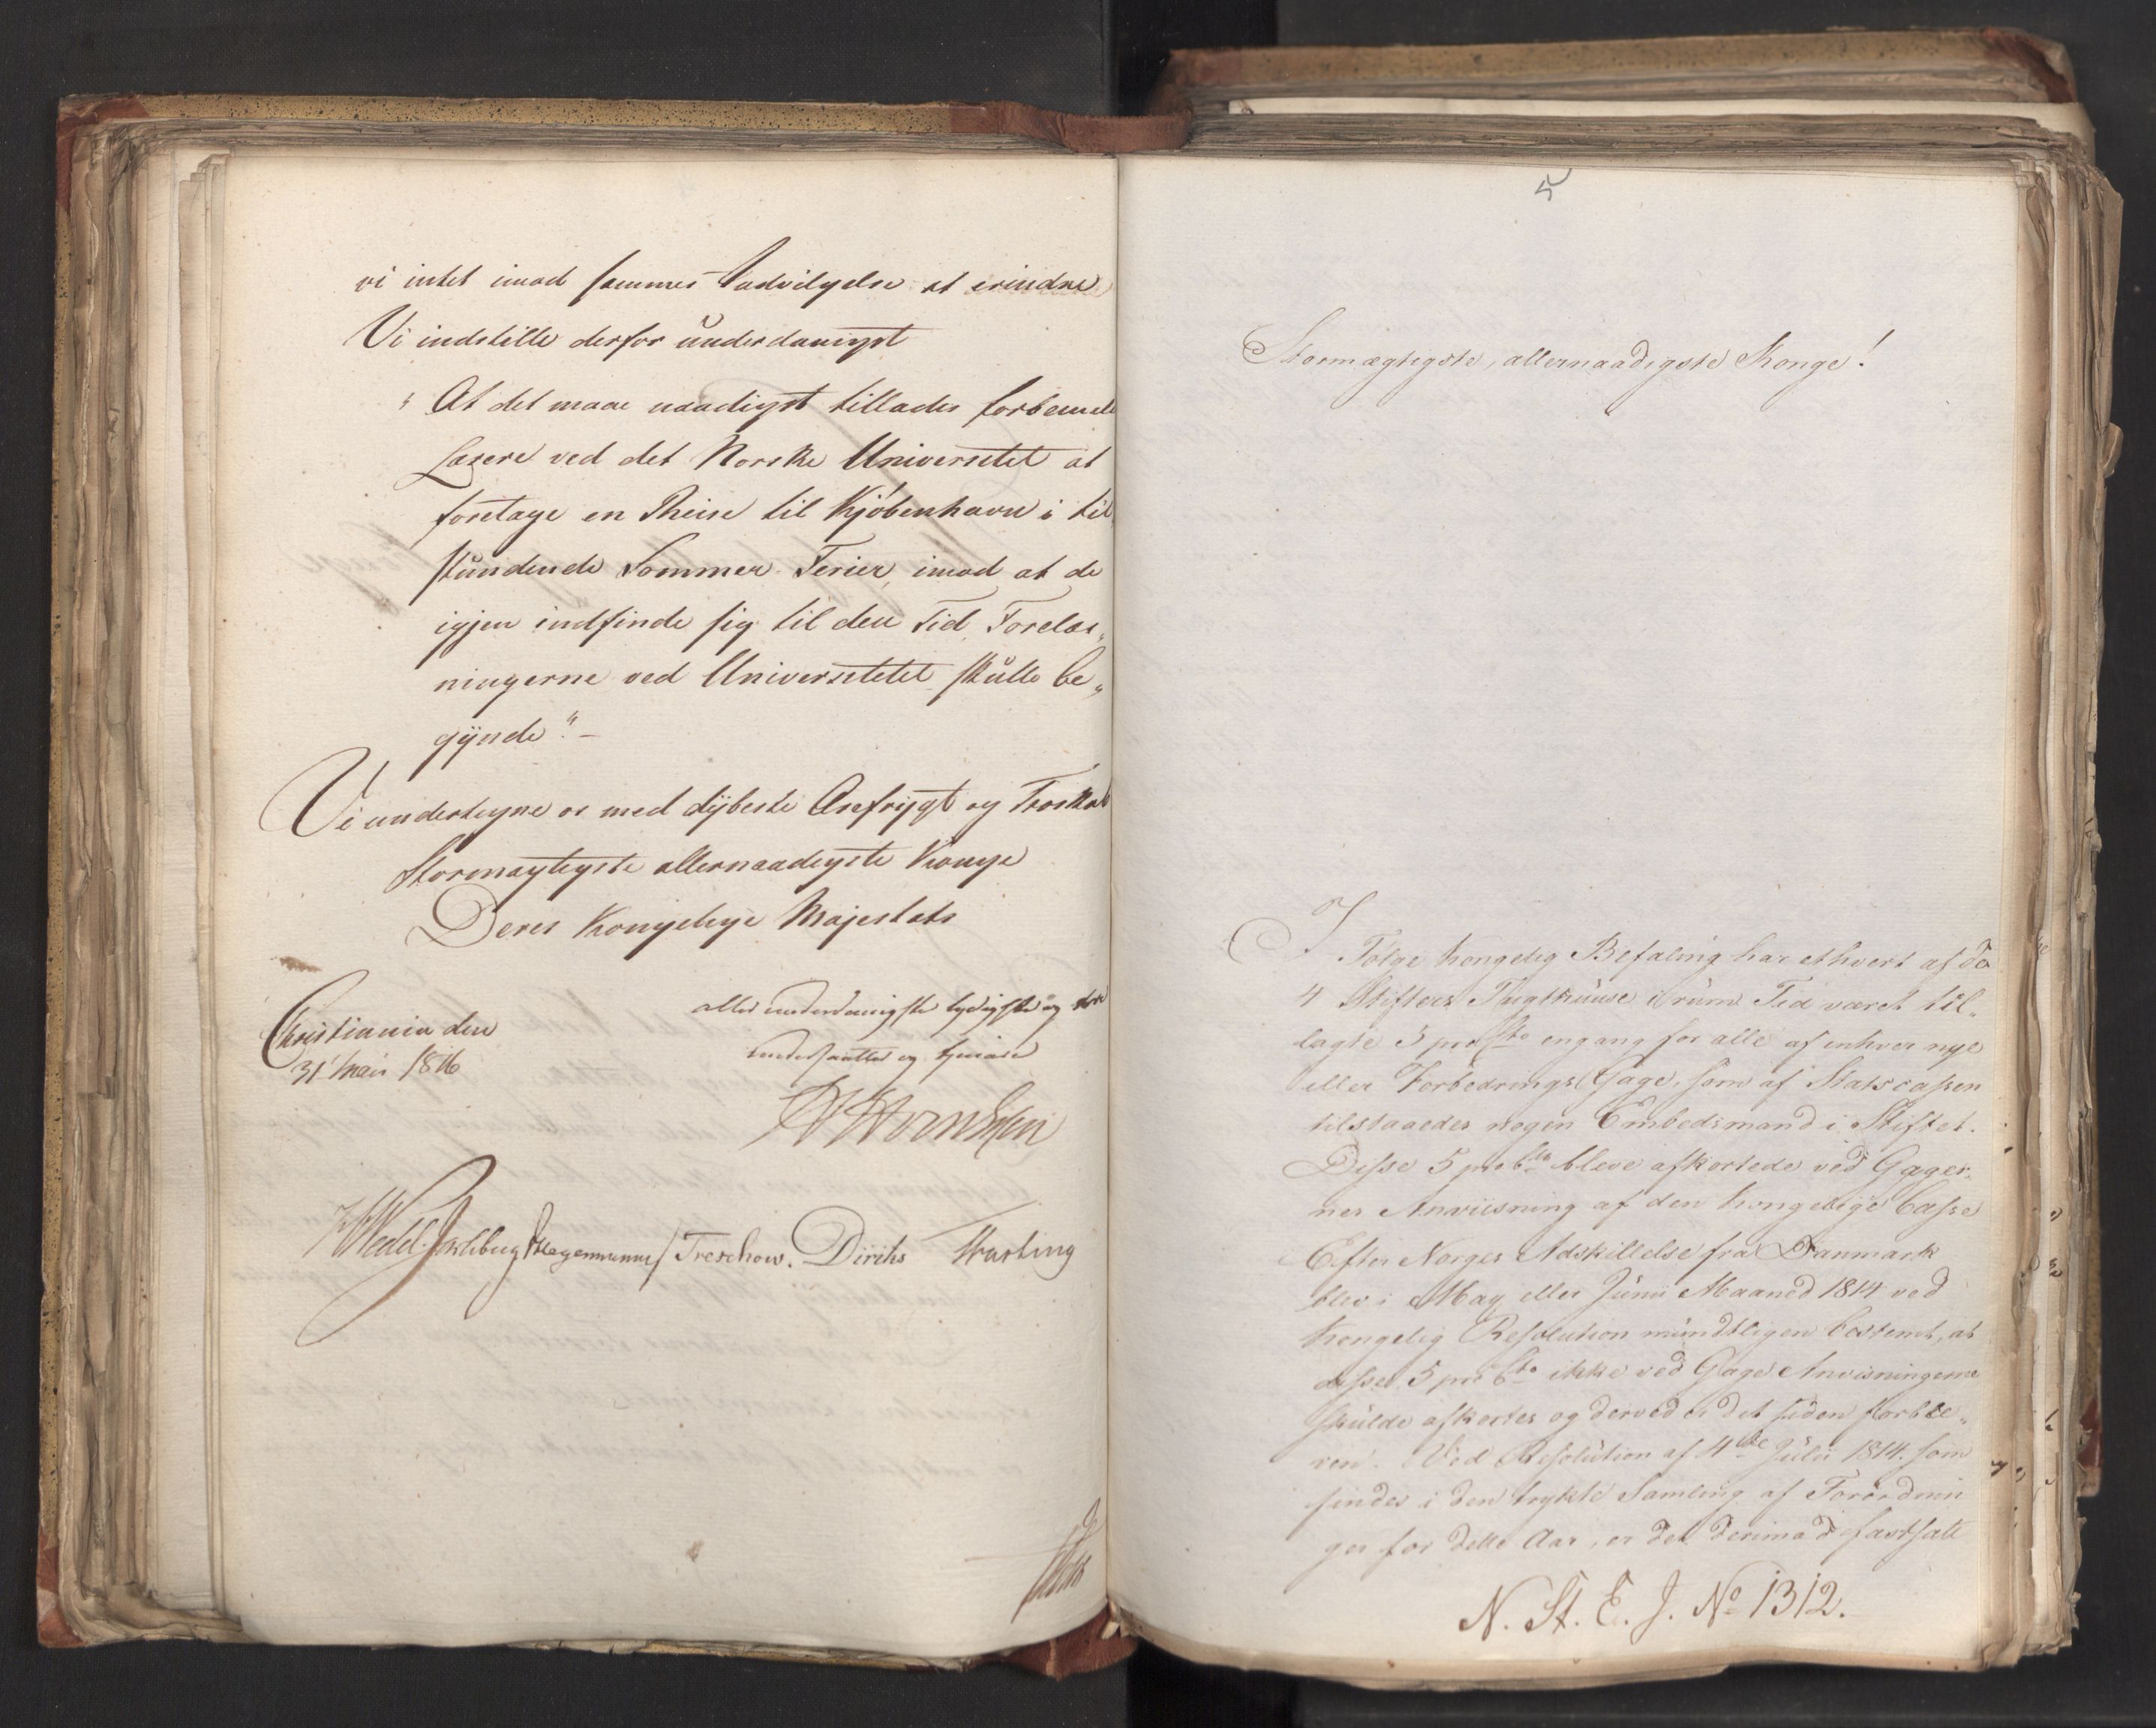 vi intet imod sammes Indvilgelse at erindre
Vi indstille derfor underdanigst
" At det maae naadigst tillades forbemeldte
Lærere ved det Norske Universitet at
foretage en Reise til Kjöbenhavn i til
stundende Sommer-Ferier, imod at de
igjen indfinde sig til den Tid Forelæs„
ningerne ved Universitetet skulle be„
gynde". –
Vi undertegne os med dybeste Ærefrygt og Troskab
Stormægtigste allernaadigste Konge
Deres Kongelige Majestæts
Christiania den
31 Mai 1816
allerunderdanigste lydigste og
undersaatter og tjenere
Wedel-Jarlsberg Treschow. Diriks
5
Stormægtigste, allernaadigste Konge!
I Følge Kongelig Befaling har ethvert af de
4 Stifters Tugthuuse i rum Tid været til„
lagte 5 pro Cto engang for alle af enhver nye
eller Forbedrings Gage, som af Statscassen
tilstaaedes nogen Embedsmand i Stiftet.
Disse 5 pro Cto bleve afkortede ved Gager„
nes Anviisning af den kongelige Casse
Efter Norges Adskillelse fra Danmark
blev i May eller Junii Maaned 1814 ved
Kongelig Resolution mundtligen bestemt, at
disse 5 pro Cto ikke ved Gage Anvisningerne
skulde afkortes og derved er det siden forble„
ven. Ved Resolution af 4de Julii 1814. som
findes i den trykte Samling af Forordnin
ger for dette Aar, er det derimod fastsatt
N. St. E. J. No 1312.